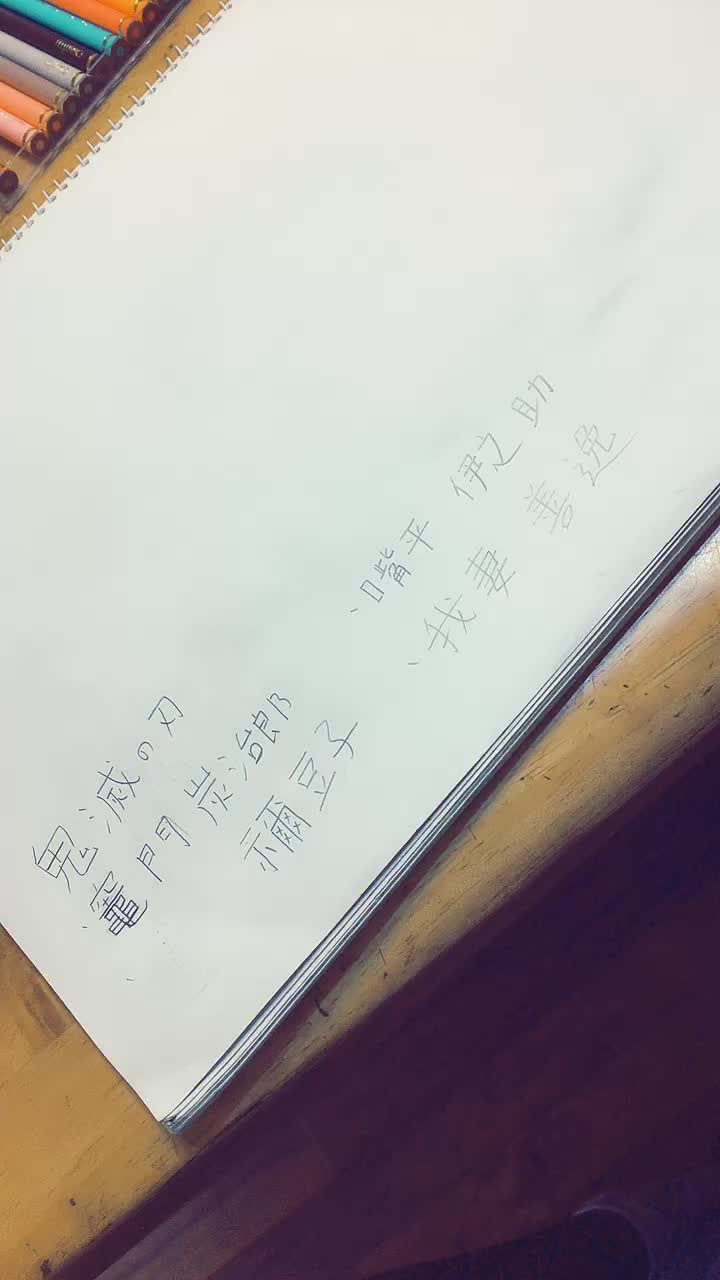 鬼滅の刃
・竈門 炭治郎
禰豆子
・嘴平 伊之助
・我妻 善逸